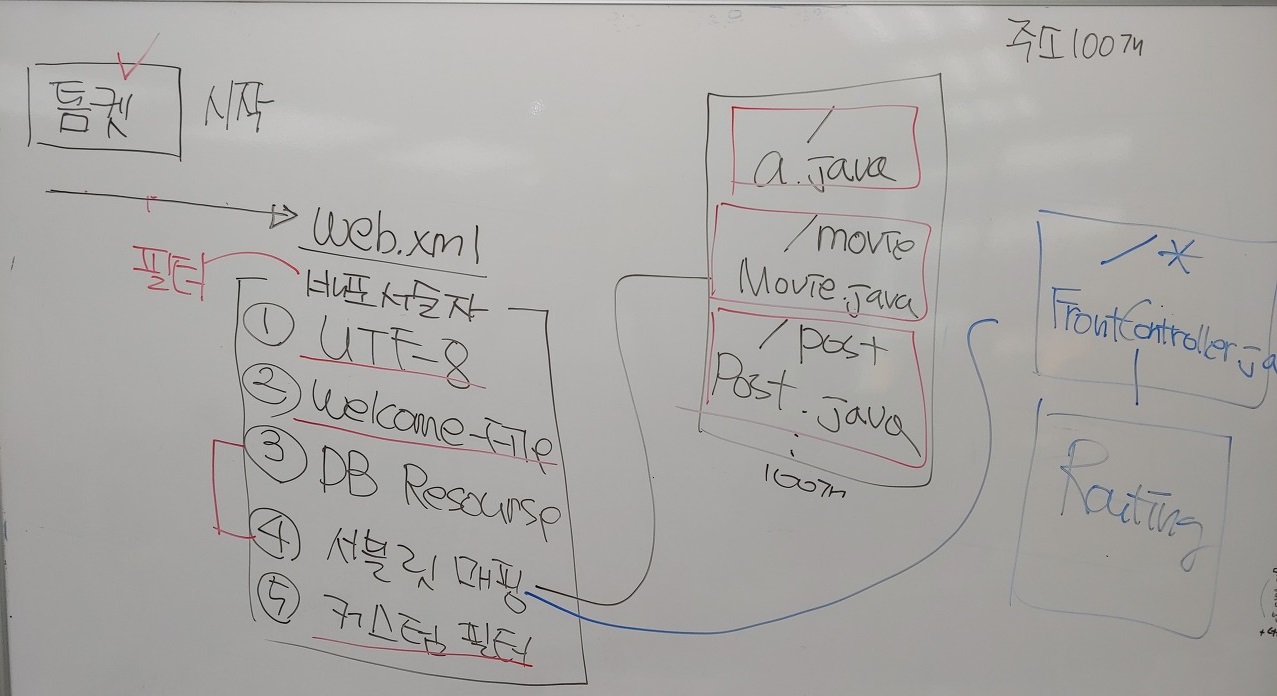 톰켓 시작
web.xml
필터
배포서술자
① UTF-8
② Welcome-File
③ DB Resourse
④ 서블릿 매핑
⑤ 커스텀 필터
/
a.java
/movie
Movie.java
/post
Post.java
100개
주소100개
/*
FrontController.ja
Routing